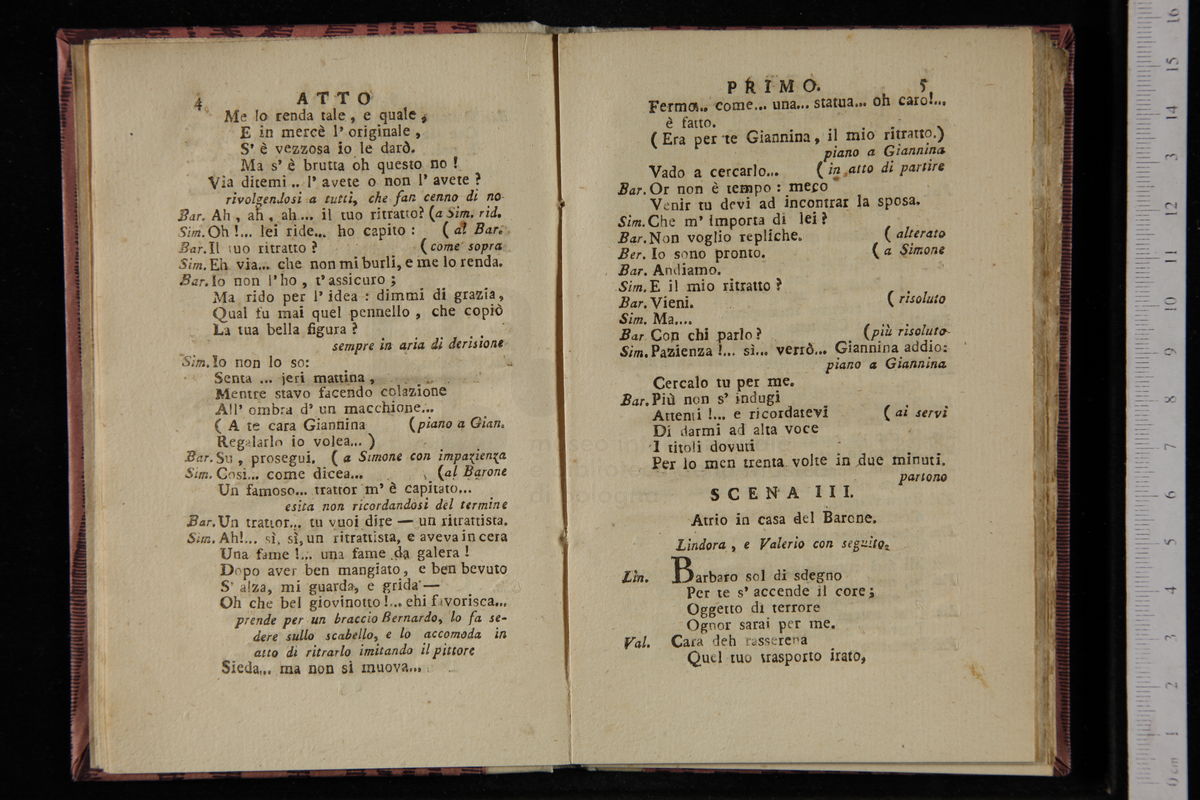 4
ATTO
Me lo renda tale, e quale,
E in mercè l' originale,
S' è vezzosa io le darò.
Ma s' è brutta oh questo no!
Via ditemi.. l' avete o non l' avete?
rivolgendosi a tutti, che fan cenno di no
Bar. Ah, ah, ah... il tuo ritratto? (a Sim. rid.
Sim. Oh!... lei ride... ho capito: (al Bar.
Bar. Il tuo ritratto? (come sopra
Sim. Eh via... che non mi burli, e me lo renda.
Bar. Io non l' ho, t' assicuro;
Ma rido per l' idea: dimmi di grazia,
Qual fu mai quel pennello, che copiò
La tua bella figura?
sempre in aria di derisione
Sim. Io non lo so:
Senta ... jeri mattina,
Mentre stavo facendo colazione
All' ombra d' un macchione...
( A te cara Giannina (piano a Gian.
Regalarlo io volea... )
Bar. Su, prosegui. ( a Simone con impazienza
Sim. Così... come dicea... (al Barone
Un famoso... trattor m' è capitato...
esita non ricordandosi del termine
Bar. Un trattor... tu vuoi dire — un ritrattista.
Sim. Ah!... sì, sì, un ritrattista, e aveva in cera
Una fame!... una fame da galera!
Dopo aver ben mangiato, e ben bevuto
S' alza, mi guarda, e grida —
Oh che bel giovinotto!... ehi favorisca...
prende per un braccio Bernardo, lo fa se-
dere sullo scabello, e lo accomoda in
atto di ritrarlo imitando il pittore
Sieda... ma non si muova...
PRIMO.
5
Fermo... come... una... statua... oh caro!...
è fatto.
( Era per te Giannina, il mio ritratto.)
piano a Giannina
Vado a cercarlo... (in atto di partire
Bar. Or non è tempo: meco
Venir tu devi ad incontrar la sposa.
Sim. Che m' importa di lei?
Bar. Non voglio repliche. ( alterato
Ber. Io sono pronto. ( a Simone
Bar. Andiamo.
Sim. E il mio ritratto?
Bar. Vieni. ( risoluto
Sim. Ma....
Bar Con chi parlo? (più risoluto
Sim. Pazienza!... sì... verrò... Giannina addio:
piano a Giannina
Cercalo tu per me.
Bar. Più non s' indugi
Attenti!... e ricordatevi ( ai servi
Di darmi ad alta voce
I titoli dovuti
Per lo men trenta volte in due minuti.
partono
SCENA III.
Atrio in casa del Barone.
Lindora, e Valerio con seguito.
Lin. Barbaro sol di sdegno
Per te s' accende il core;
Oggetto di terrore
Ognor sarai per me.
Val. Cara deh rasserena
Quel tuo trasporto irato,